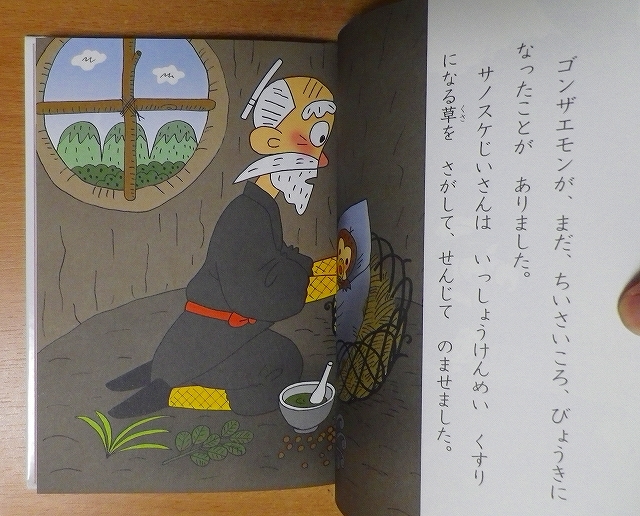 ゴンザエモンが、まだ、ちいさいころ、びょうきに
なったことが　ありました。
サノスケじいさんは　いっしょうけんめい　くすり
になる草を　さがして、せんじて　のませました。
くさ